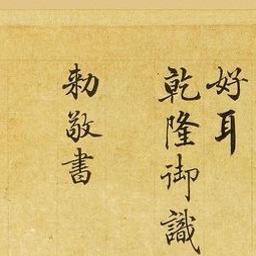 好耳
乾隆御識
勑敬書